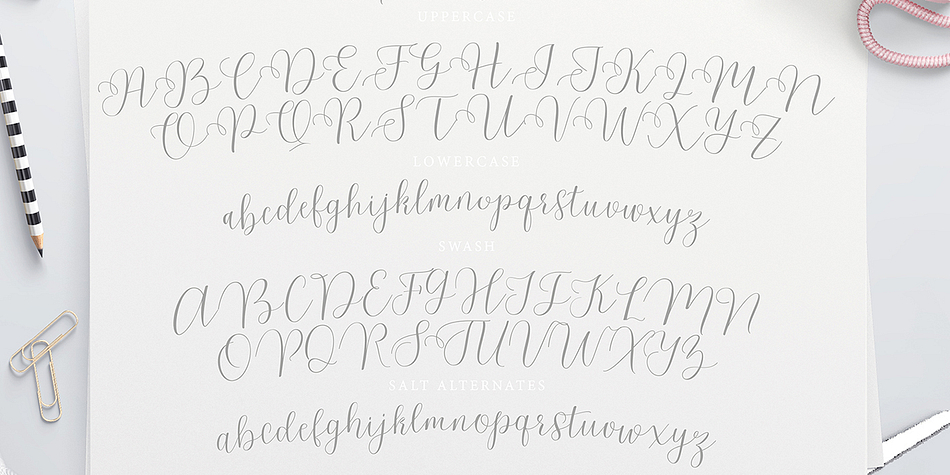 UPPERCASE
ABCDEFGHIJKLMN
OPQRSTUVWXYZ
LOWERCASE
abcdefghijklmnopqrstuvwxyz
SWASH
ABCDEFGHIJKLMN
OPQRSTUVWXYZ
SALT ALTERNATES
abcdefghijklmnopqrstuvwxyz